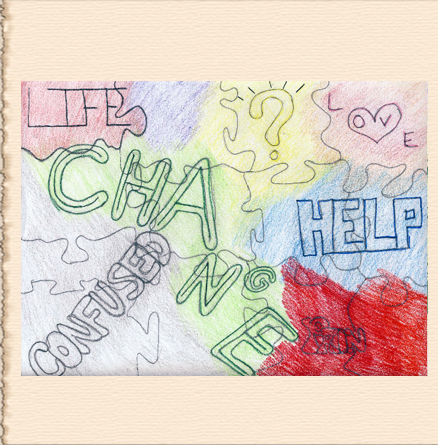 LIFE
?
LOVE
CHANGE
HELP
CONFUSED